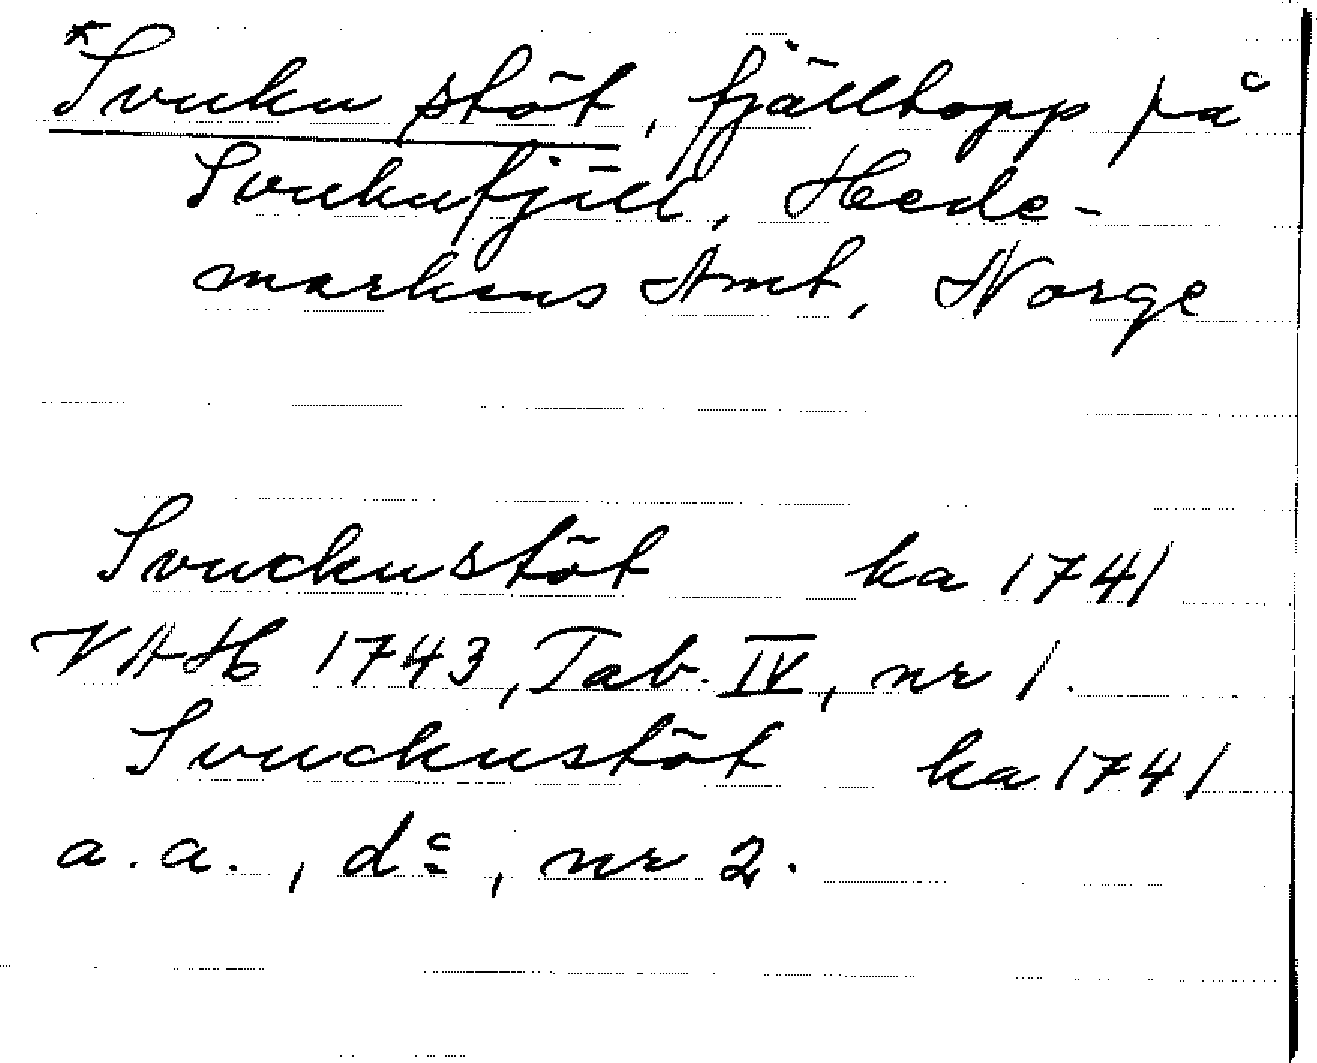 *Svuku stöt, fjälltopp på
Svukufjäll, Hede-
markens Amt, Norge
Svuckustöt ka 1741
VAH 1743, Tab. IV, nr 1.
Svuckustöt ka 1741
a.a., do, nr 2.